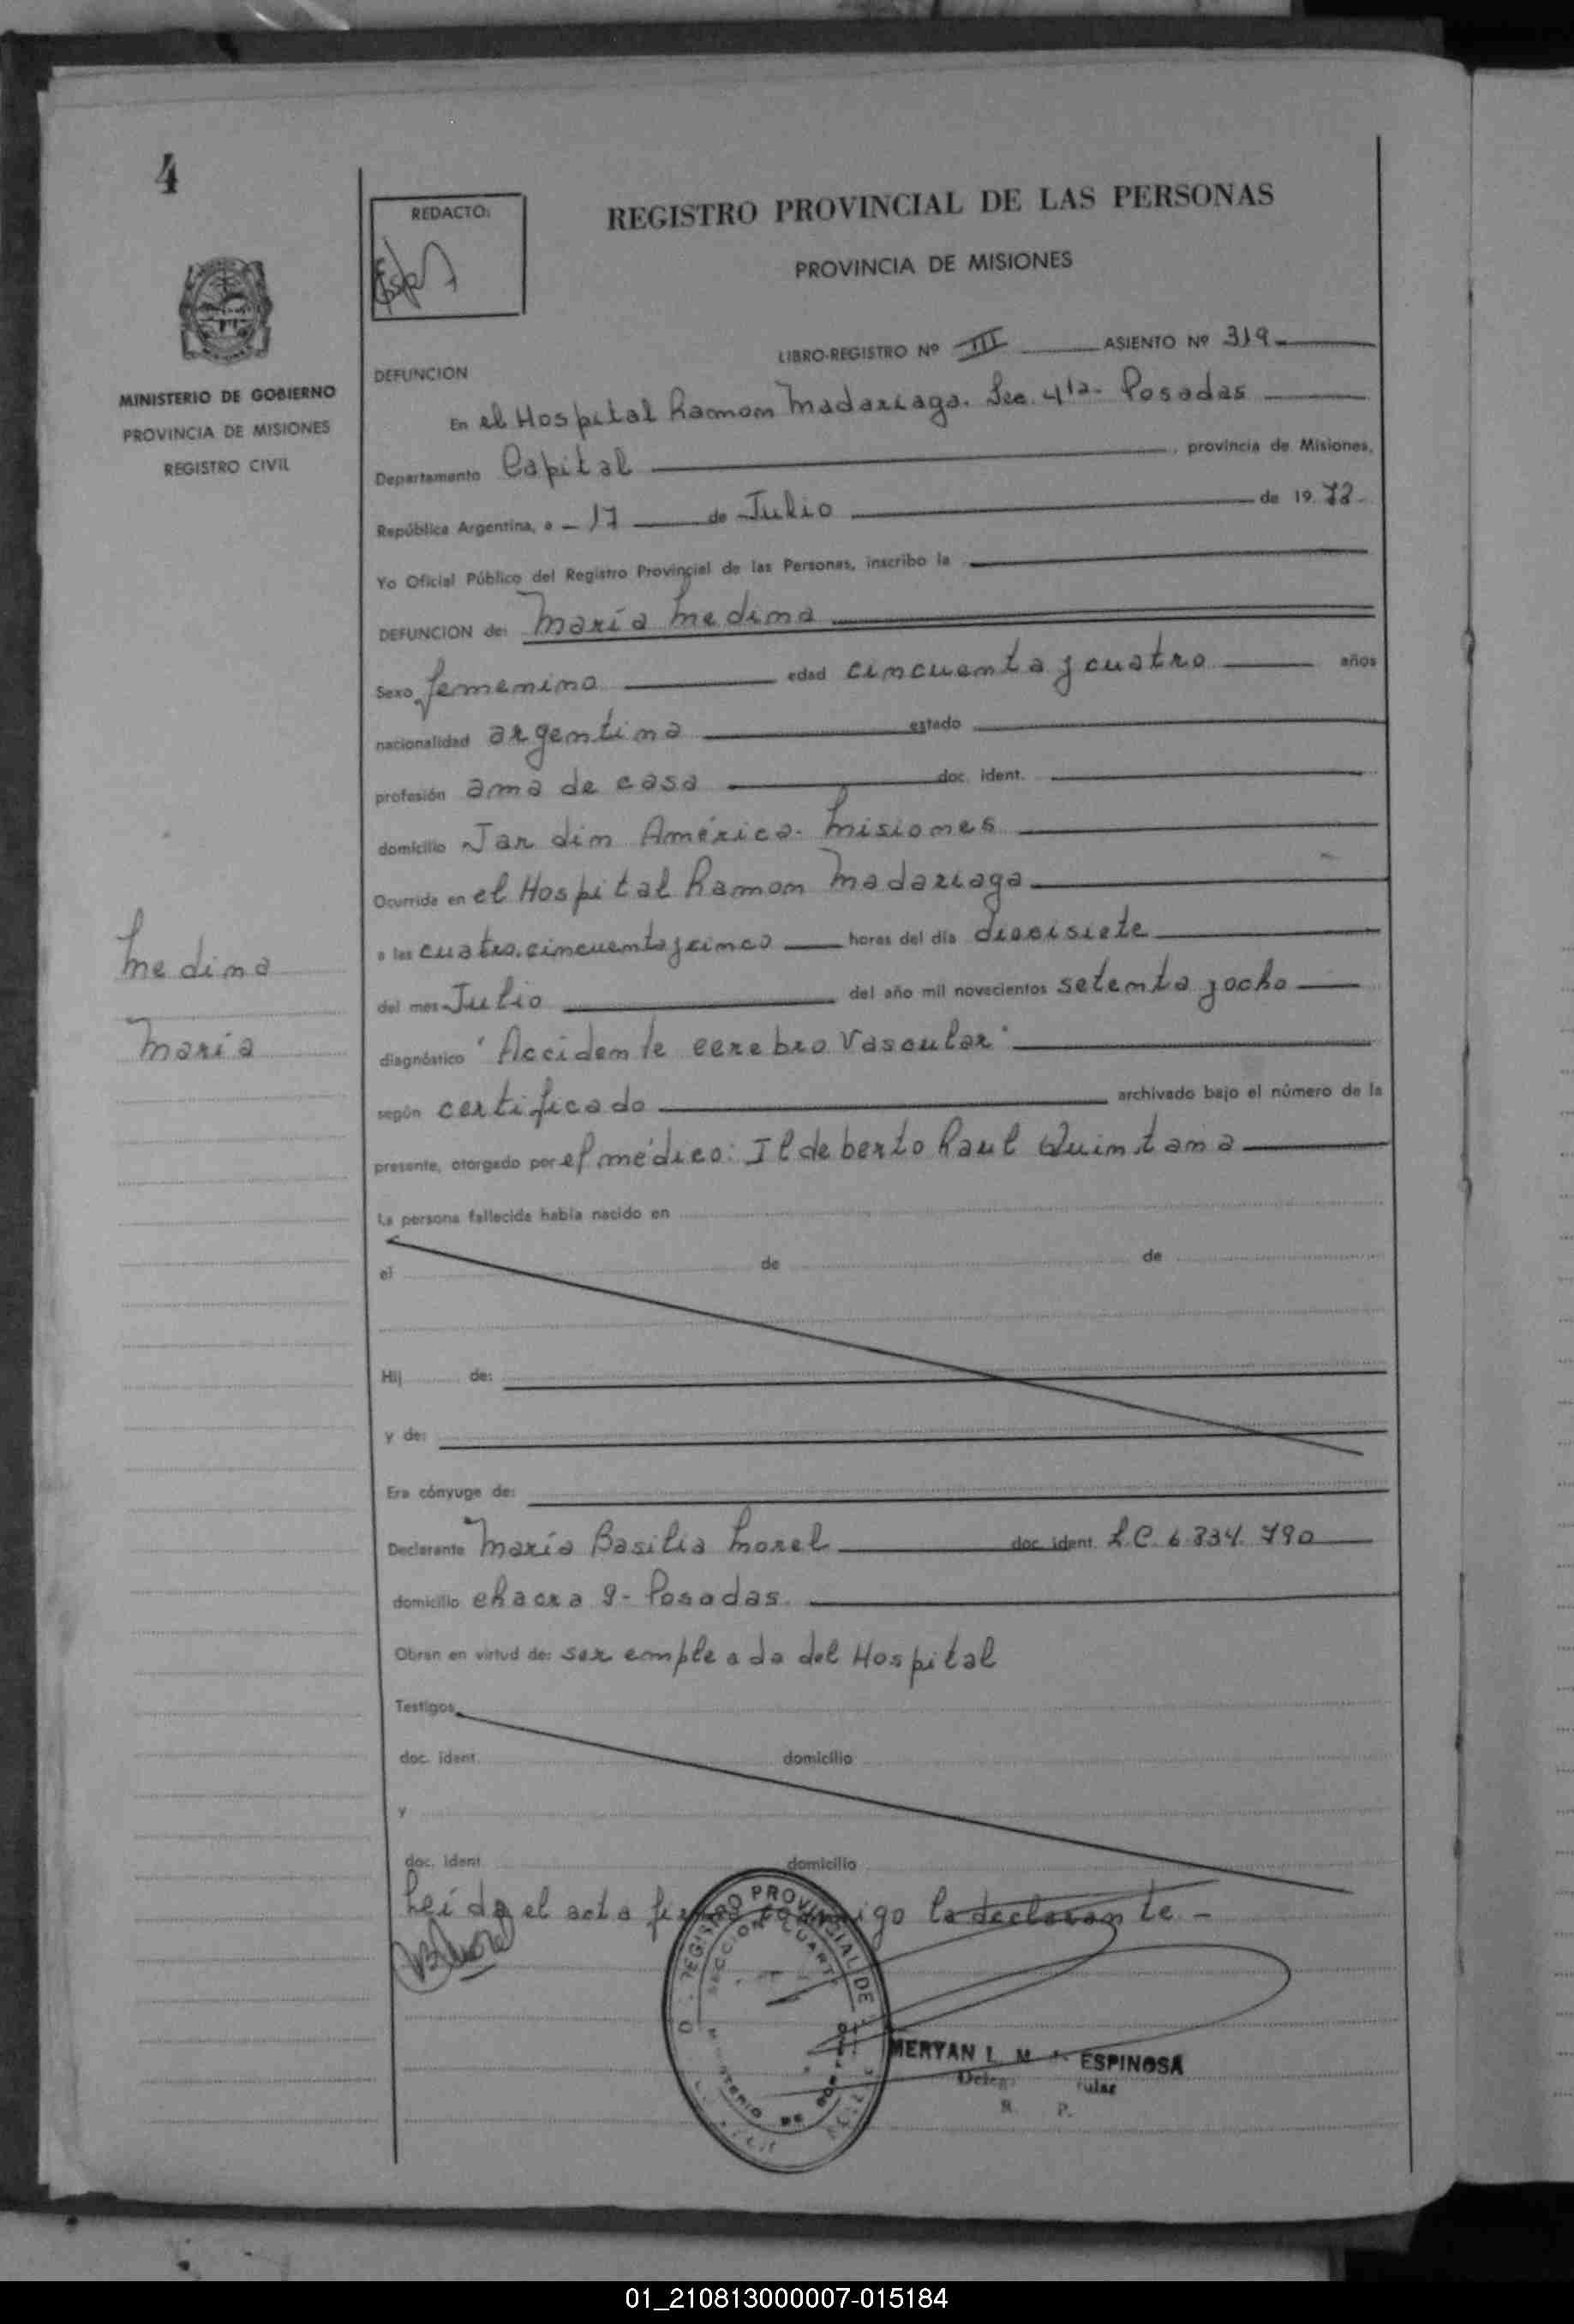 4
REDACTO:
REGISTRO PROVINCIAL DE LAS PERSONAS
PROVINCIA DE MISIONES
MINISTERIO DE GOBIERNO
PROVINCIA DE MISIONES
REGISTRO CIVIL
LIBRO-REGISTRO Nº III ASIENTO Nº 319
DEFUNCION
En el Hospital Ramon Madariaga. Sec. 4ta- Posadas
Departamento Capital , provincia de Misiones,
República Argentina, a - 17 de Julio de 19 78-
Yo Oficial Público del Registro Provincial de las Personas, inscribo la
DEFUNCION de: María Medina
Sexo femenino edad cincuenta y cuatro años
nacionalidad argentina estado
profesión ama de casa doc. ident.
domicilio Jardin América- Misiones
Ocurrida en el Hospital Ramon Madariaga
a las cuatro, cincuenta y cinco horas del día diecisiete
del mes Julio del año mil novecientos setenta y ocho
diagnóstico "Accidente cerebro Vascular"
según certificado archivado bajo el número de la
presente, otorgado por el médico: Ildeberto Raul Quintana
La persona fallecida había nacido en
el de de
Hij de:
y de:
Era cónyuge de:
Declarante María Basilia Morel doc. ident. L.C. 6.334.790
domicilio chacra 9- Posadas.
Obran en virtud de: ser empleada del Hospital
Testigos
doc. ident. domicilio
y
doc. ident. domicilio
Leída el acta firma conmigo la declarante -
Medina
María
REGISTRO PROVINCIAL DE
SECCION CUARTA
MINISTERIO DE
MERYAN I. M. ESPINOSA
01_210813000007-015184